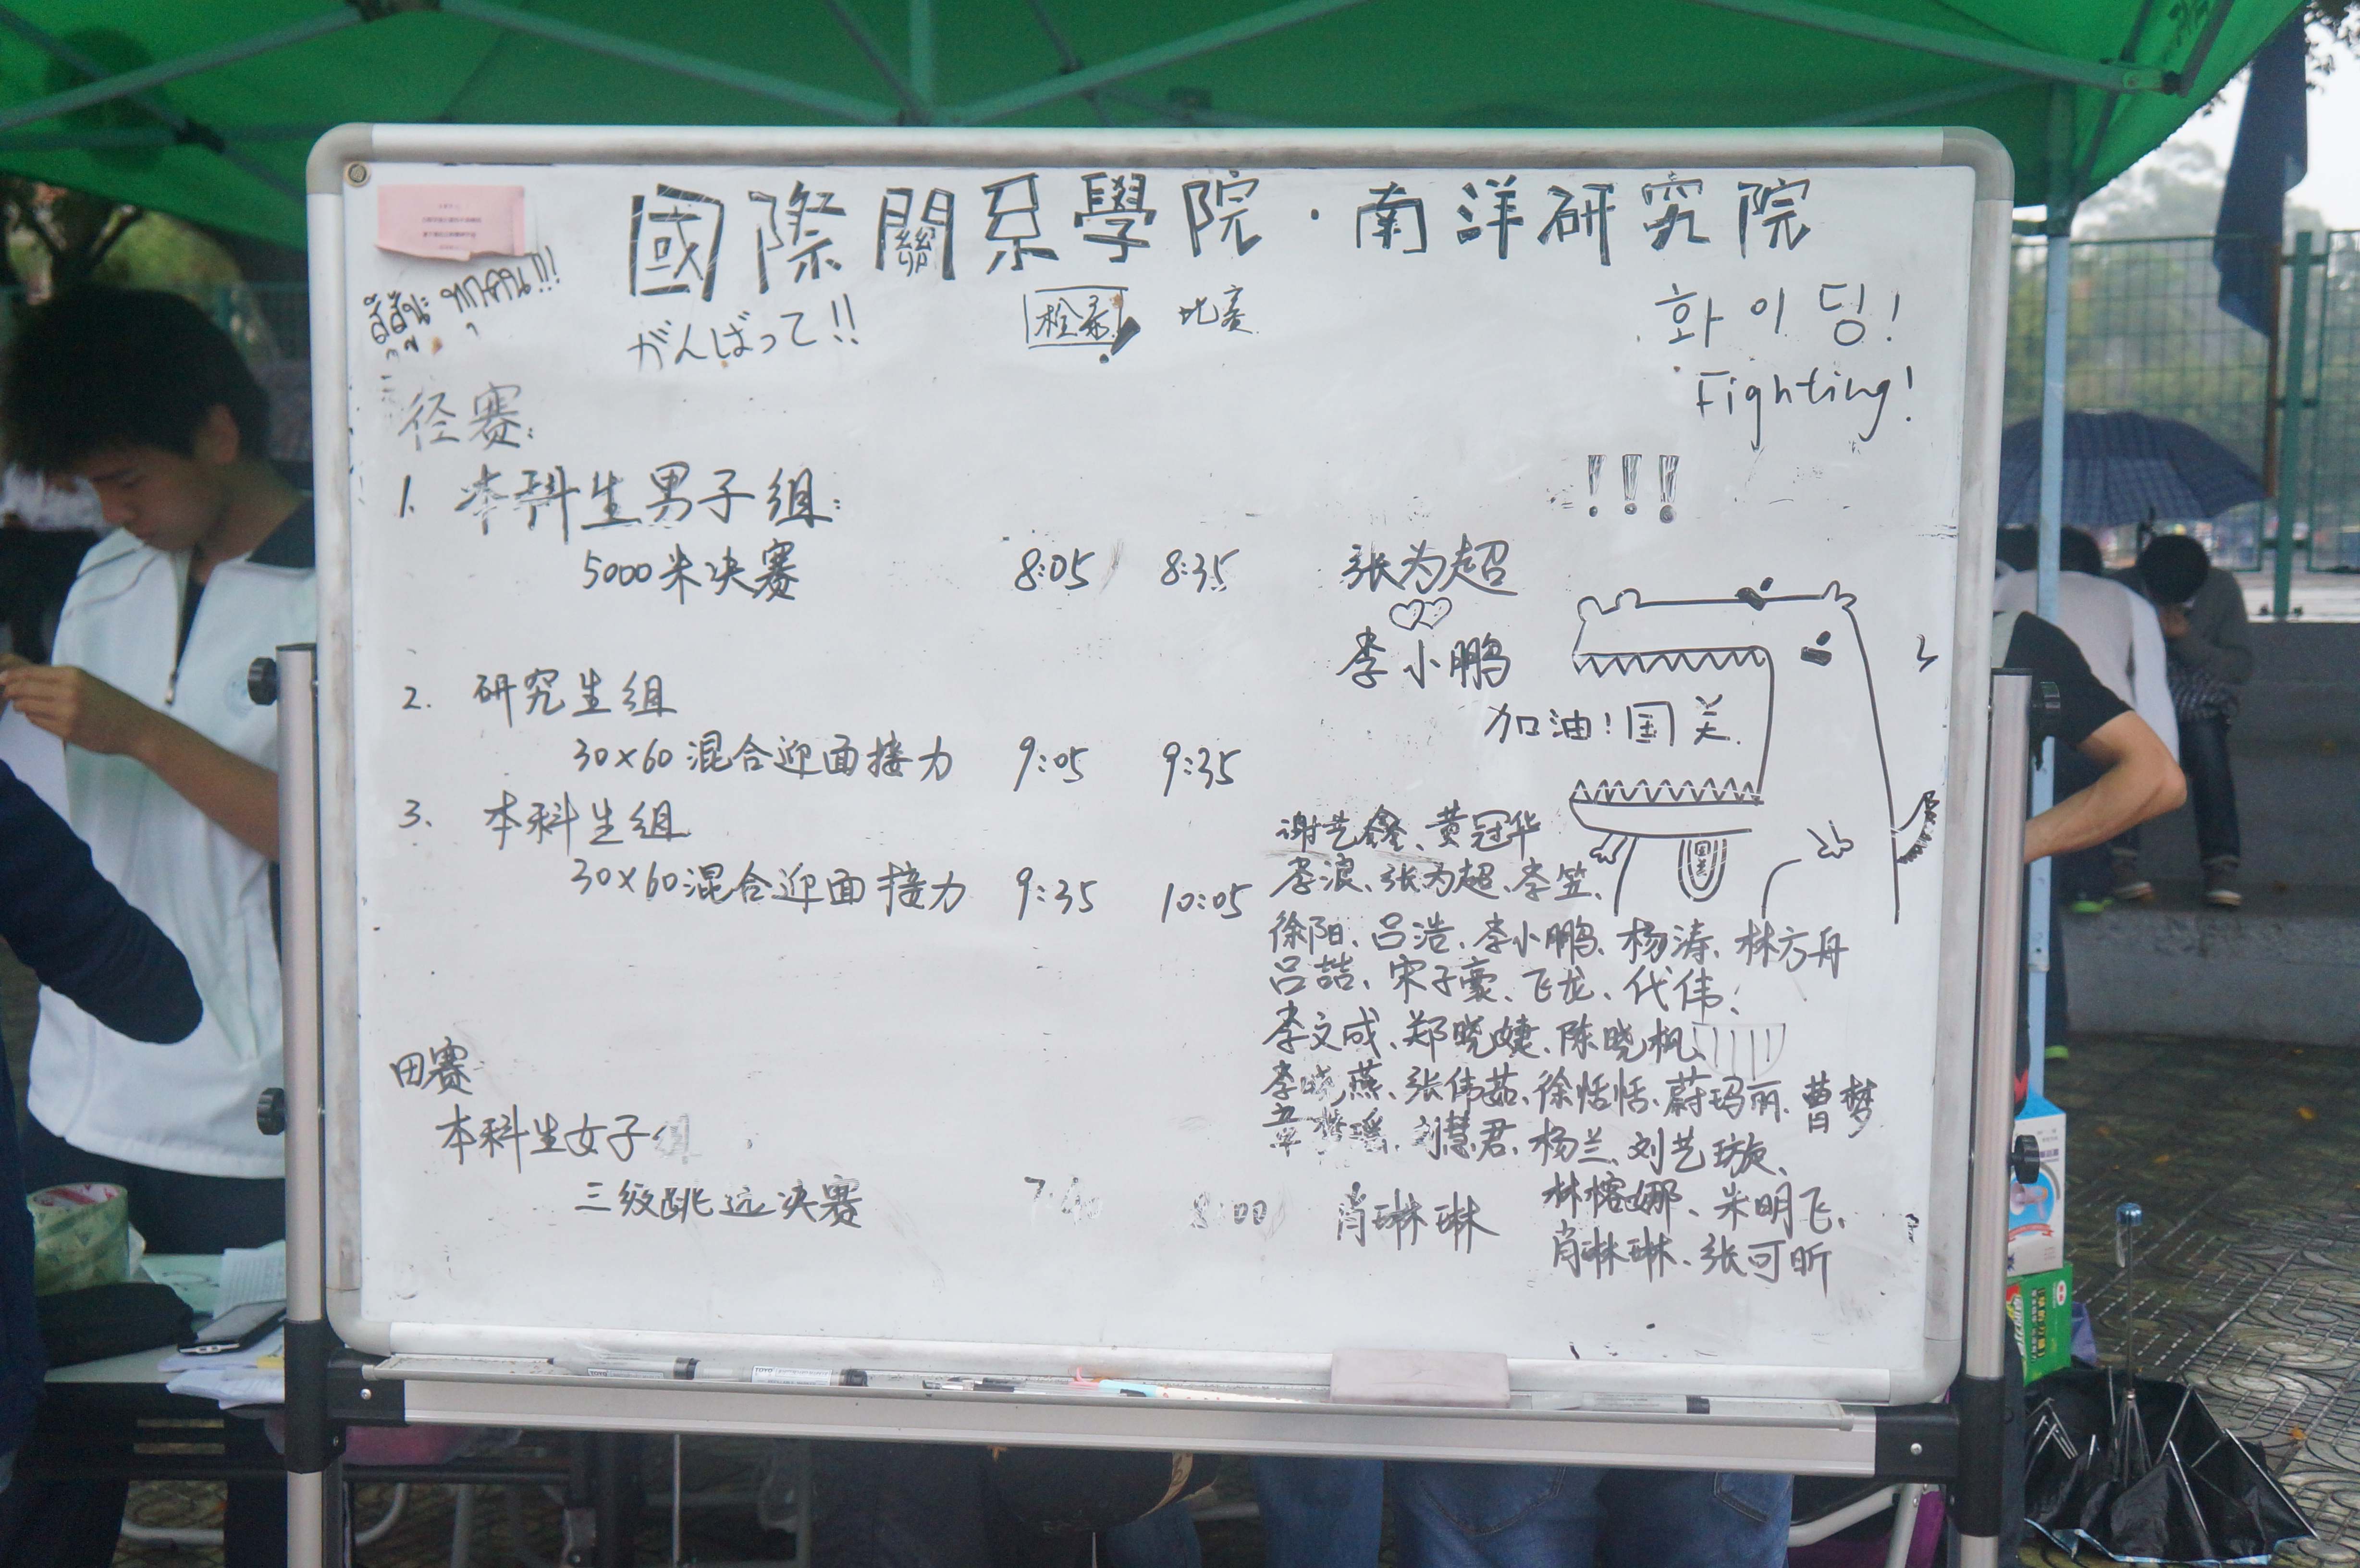 國際關系學院·南洋研究院
สู้สู้นะ ทุกคน!!!
がんばって!!
检录 比赛
화이딩!
Fighting!
!!!
径赛:
1. 本科生男子组:
5000米决赛 8:05 8:35 张为超
李小鹏
加油!国关
2. 研究生组
30×60混合迎面接力 9:05 9:35
3. 本科生组
30×60混合迎面接力 9:35 10:05
谢艺鑫、黄冠华
李浪、张为超、李笠、
国关
徐阳、吕浩、李小鹏、杨涛、林方舟
吕喆、宋子豪、飞龙、代伟、
李文成、郑晓婕、陈晓枫、
李晓燕、张伟茹、徐恬恬、蔚玛丽、曹梦
章梦瑶、刘慧君、杨兰、刘艺璇、
林榕娜、朱明飞、
肖琳琳、张可昕
田赛
本科生女子组
三级跳远决赛 7:40 8:00 肖琳琳